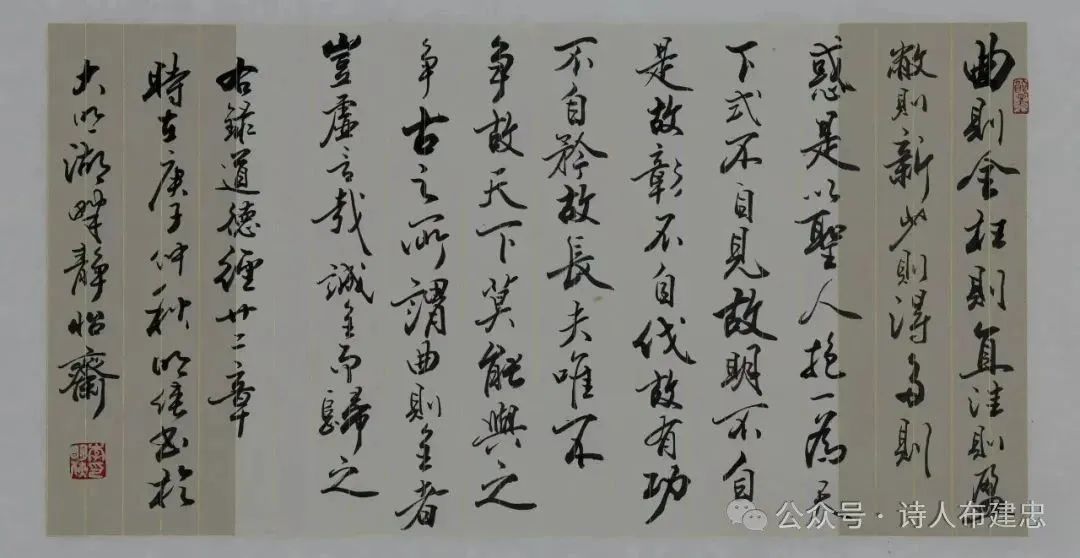 曲則全枉則直洼則盈
敝則新少則得多則
惑是以聖人抱一為天
下式不自見故明不自
是故彰不自伐故有功
不自矜故長夫唯不
争故天下莫能與之
争古之所謂曲則全者
豈虛言哉誠全而歸之
右錄道德經廿二章
時在庚子仲秋明书於
大明湖畔靜怡齋
公众号·诗人布建忠